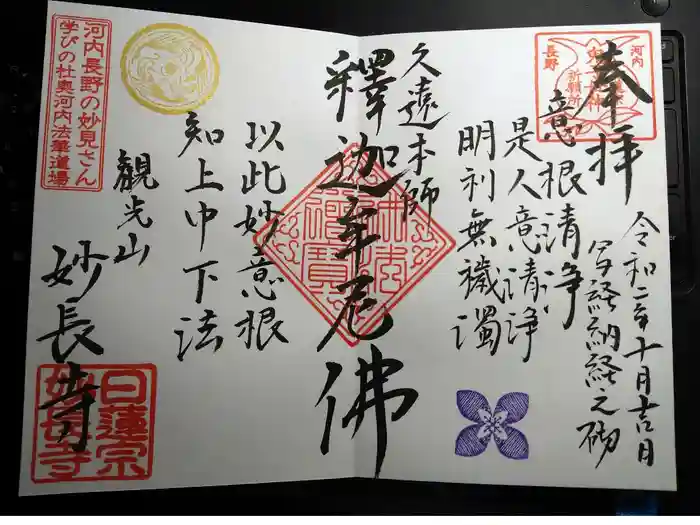 河内
長野
祈願所
奉拝
令和二年十月吉日
写経納経之砌
意根清浄
是人意清浄
明利無穢濁
久遠本師
釋迦牟尼佛
佛法僧寶
以此妙意根
知上中下法
観光山
妙長寺
日蓮宗
妙長寺
河内長野の妙見さん
学びの杜奥河内法華道場